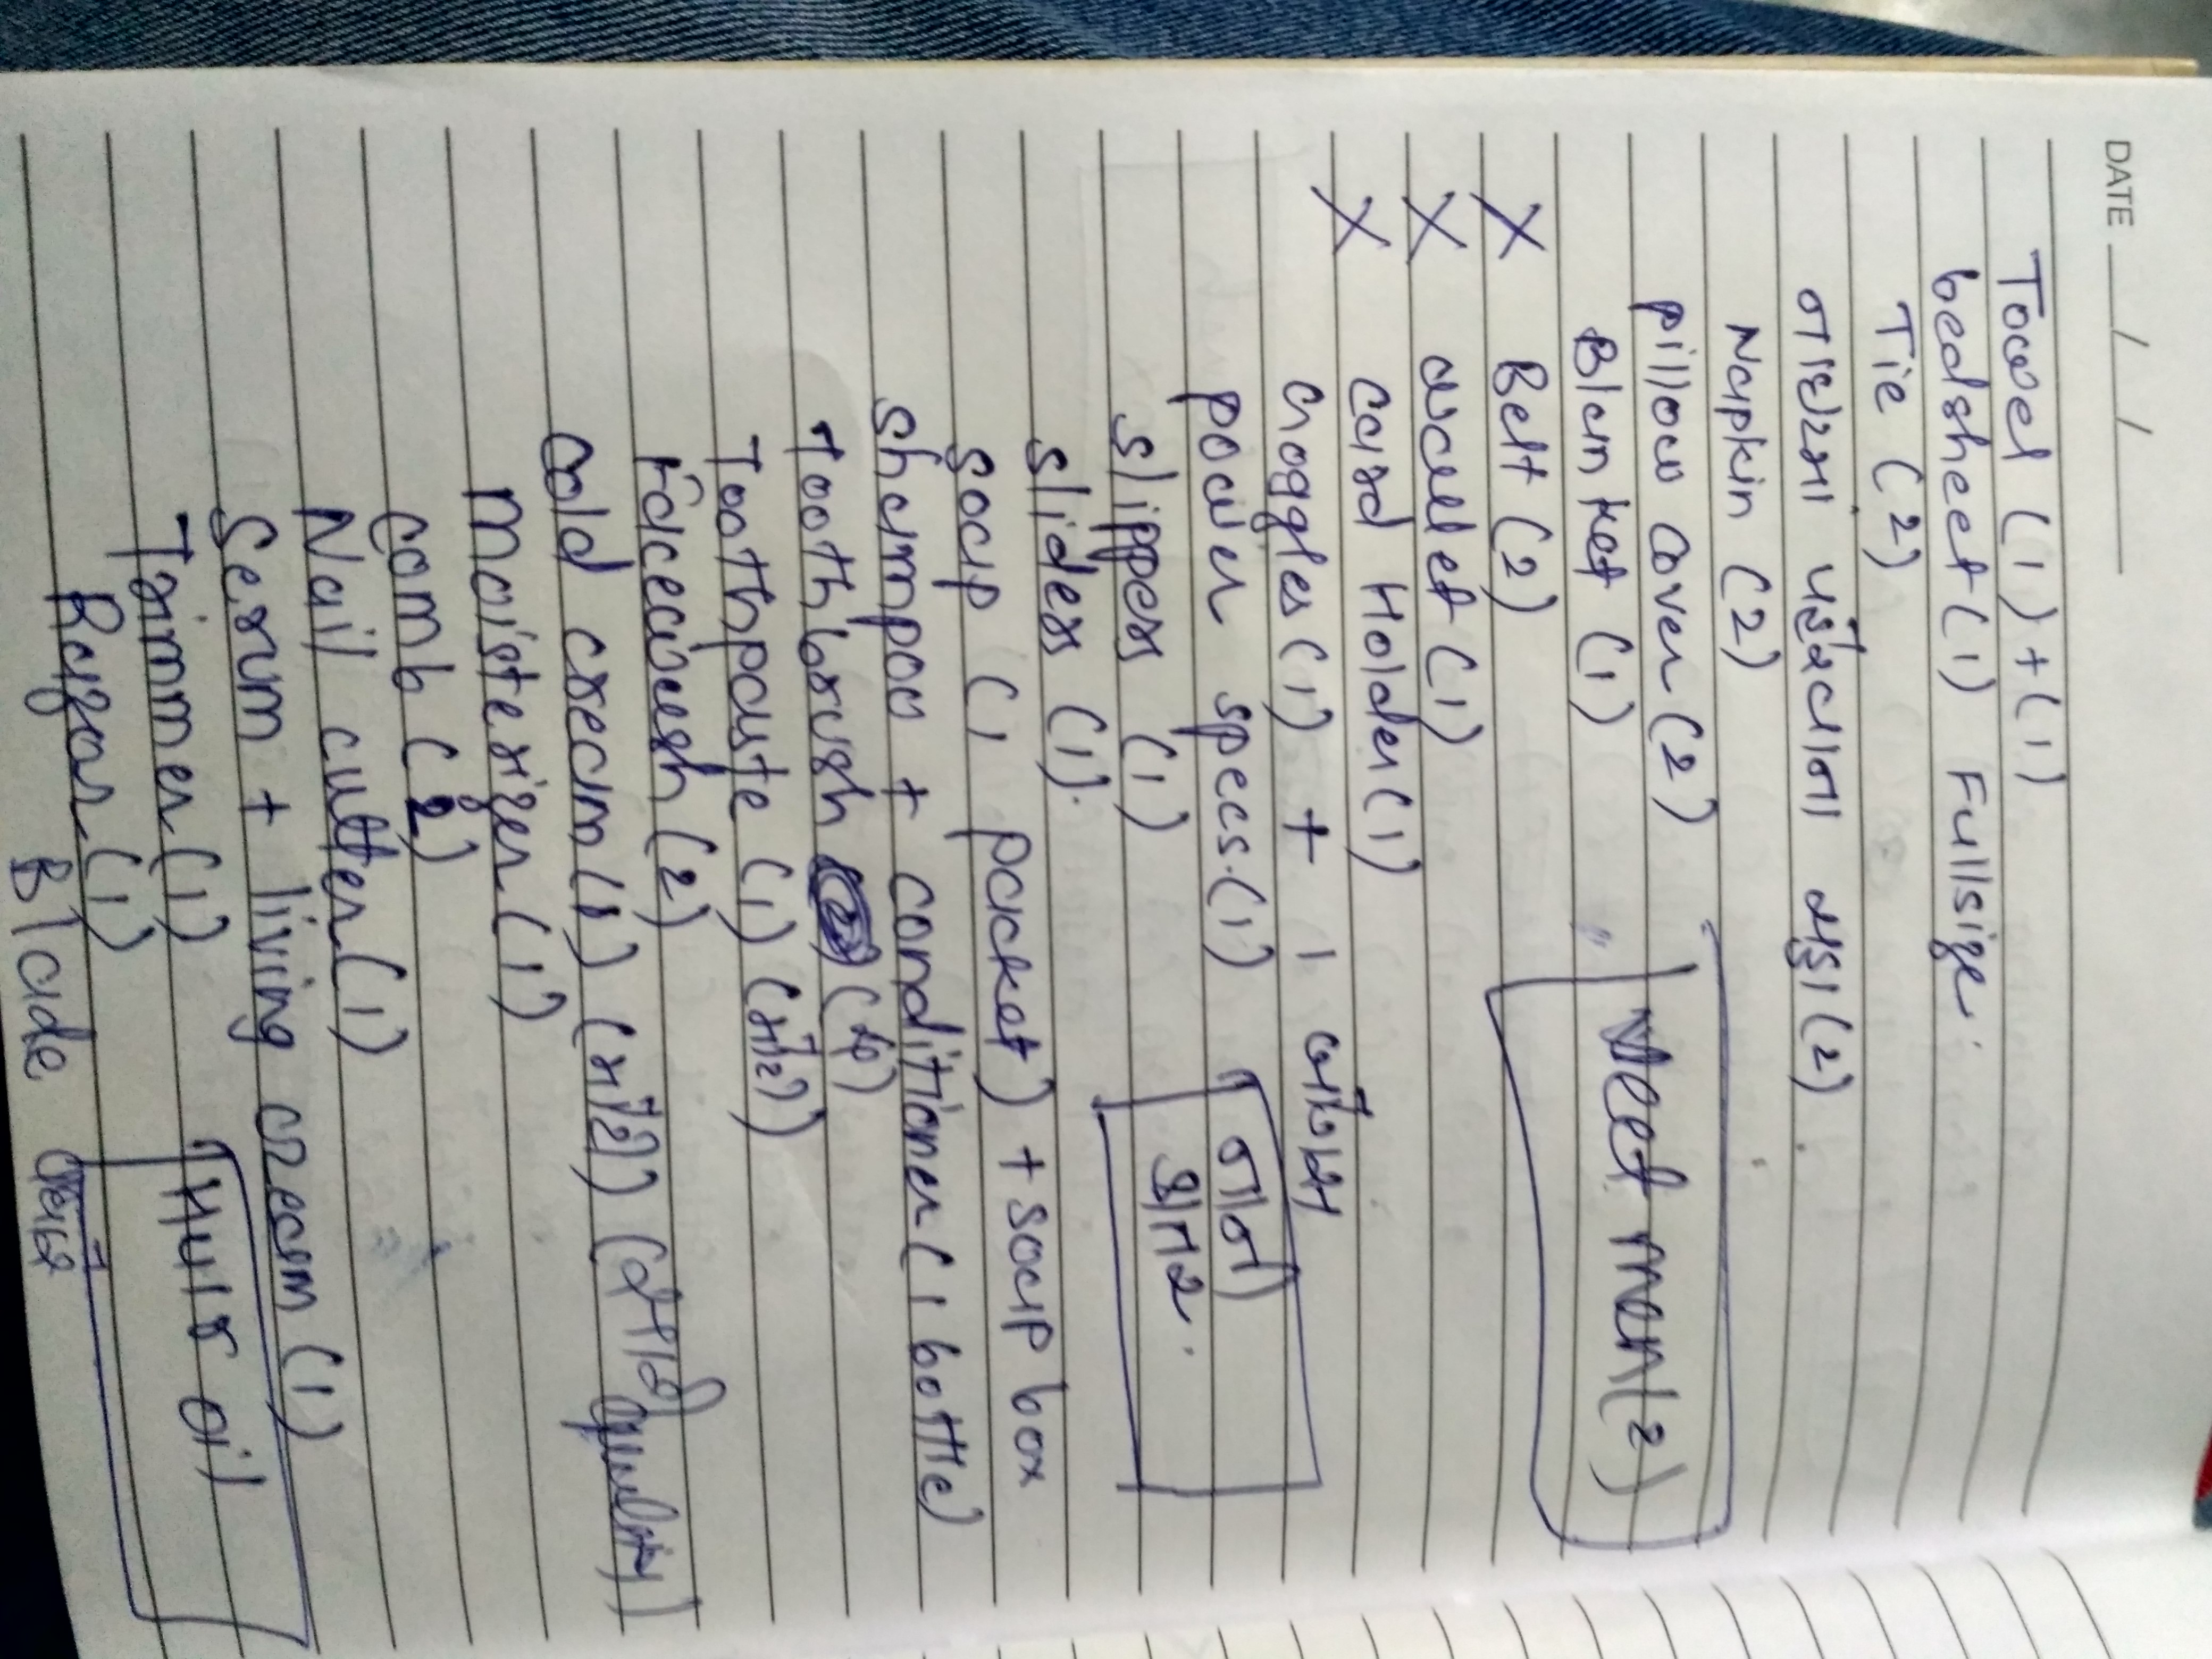 DATE __/__/__
Towel (1) + (1)
bedsheet (1) Fullsize.
Tie (2)
ગાદલા
Napkin (2)
pillow cover (2)
Blanket (1)
Veet men (2)
X Belt (2)
X wallet (1)
X Card Holder (1)
Goggles (1) + 1
power specs. (1)
slippers (1)
sliders (1).
soap (1 packet) + soap box
shampoo + conditioner (1 bottle)
Toothbrush (4)
Toothpaste (1) (મોટી)
Facewash (2)
Cold cream (1) (મોટી) (સારી quality)
Moisterizer (1)
comb (2)
Nail cutter (1)
Serum + living cream (1)
Trimmer (1)
Hair oil
Razor (1)
Blade